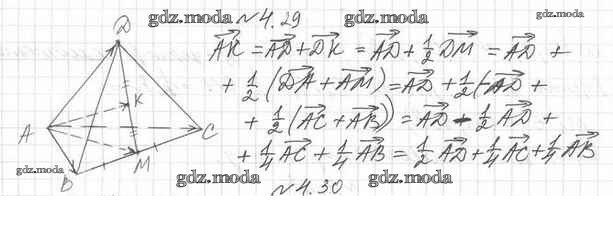 gdz.moda №4.29 gdz.moda gdz.moda
D
AK⃗ = AD⃗ + DK⃗ = AD⃗ + 1/2 DM⃗ = AD⃗ +
+ 1/2 (DA⃗ + AM⃗) = AD⃗ + 1/2 (-AD⃗ +
K
+ 1/2 (AC⃗ + AB⃗)) = AD⃗ - 1/2 AD⃗ +
A C
+ 1/4 AC⃗ + 1/4 AB⃗ = 1/2 AD⃗ + 1/4 AC⃗ + 1/4 AB⃗
M
gdz.moda
B
gdz.moda gdz.moda
№4.30